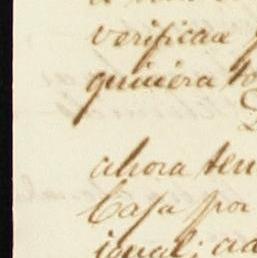 verificar
quiciera to
ahora ten
Casa por
igual; ad